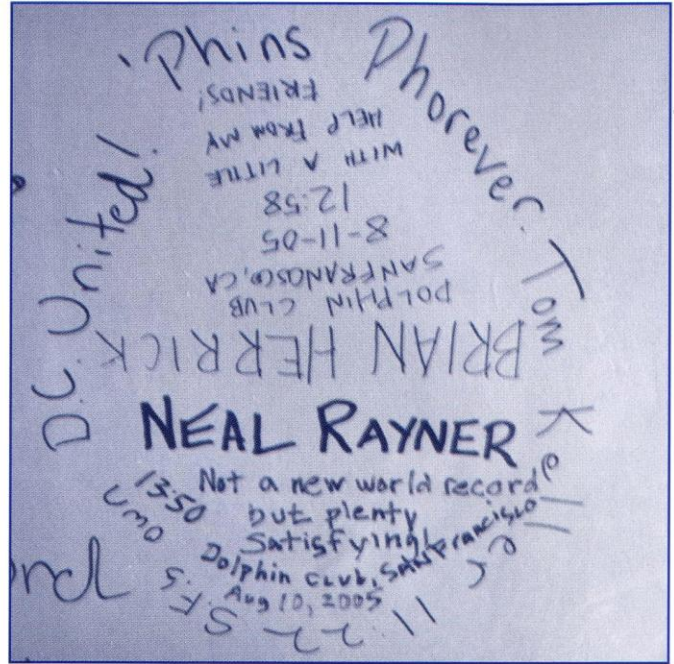 D.C. United! 'Phins Phorever. Tom Keller 11:22 S.F.S
UMO
BRIAN HERRICK
DOLPHIN CLUB
SAN FRANCISCO, CA
8-11-05
12:58
WITH A LITTLE
HELP FROM MY
FRIENDS!
NEAL RAYNER
13:50
Not a new world record
but plenty
Satisfying!
Dolphin club, SAN Francisco
Aug 10, 2005